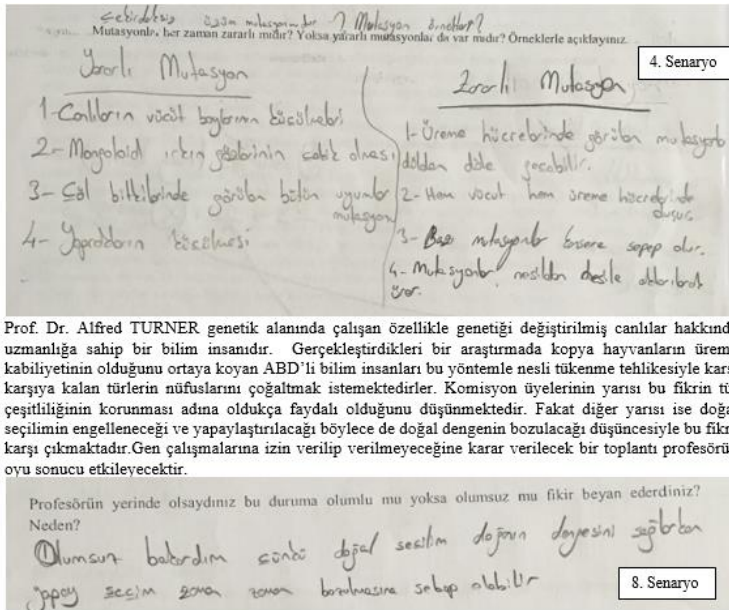 Çekirdeksiz üzüm mutasyonmudur ? Mutasyon örnekleri?
Mutasyonlar, her zaman zararlı mıdır? Yoksa yararlı mutasyonlar da var mıdır? Örneklerle açıklayınız.
4. Senaryo
Yararlı Mutasyon
1-Canlıların vücüt boylarının küçülmeleri
2- Mongoloid ırkın gözlerinin çekik olması
3- Çöl bitkilerinde görülen bütün uyumlar
mutasyon
4- Yaprakların küçülmesi
Zararlı Mutasyon
1-Üreme hücrelerinde görülen mutasyonlar
dölden döle geçebilir.
2- Hem vücut hem üreme hücrelerinde
3- Bazı mutasyonlar kansere sepep olur.
4- Mutasyonlar nesilden nesile aktarılarak
Prof. Dr. Alfred TURNER genetik alanında çalışan özellikle genetiği değiştirilmiş canlılar hakkınd
uzmanlığa sahip bir bilim insanıdır. Gerçekleştirdikleri bir araştırmada kopya hayvanların ürem
kabiliyetinin olduğunu ortaya koyan ABD'li bilim insanları bu yöntemle nesli tükenme tehlikesiyle karş
karşıya kalan türlerin nüfuslarını çoğaltmak istemektedirler. Komisyon üyelerinin yarısı bu fikrin tü
çeşitliliğinin korunması adına oldukça faydalı olduğunu düşünmektedir. Fakat diğer yarısı ise doğa
seçilimin engelleneceği ve yapaylaştırılacağı böylece de doğal dengenin bozulacağı düşüncesiyle bu fikr
karşı çıkmaktadır.Gen çalışmalarına izin verilip verilmeyeceğine karar verilecek bir toplantı profesörü
oyu sonucu etkileyecektir.
Profesörün yerinde olsaydınız bu duruma olumlu mu yoksa olumsuz mu fikir beyan ederdiniz?
Neden?
Olumsuz bakardım çünkü doğal seçilim doğanın dengesini sağlarken
yapay seçim zaman zaman bozulmasına sebap olabilir
8. Senaryo